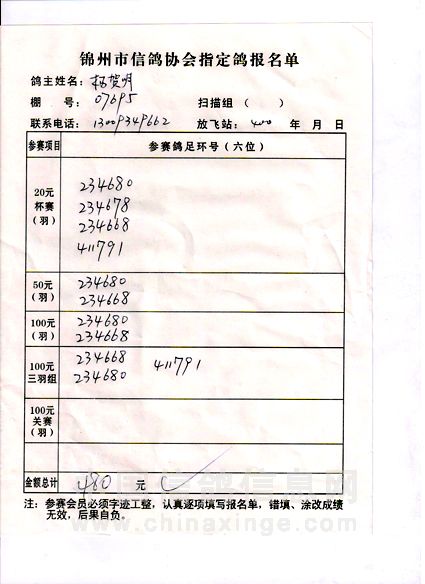 锦州市信鸽协会指定鸽报名单
鸽主姓名: 杨贺明
棚 号: 07695 扫描组 ( )
联系电话: 13009349662 放飞站: 400 年 月 日
参赛项目 参赛鸽足环号 (六位)
20元
杯赛
(羽)
234680
234678
234668
411791
50元
(羽)
234680
234668
100元
(羽)
234680
234668
100元
三羽组
234668 411791
234680
100元
关赛
(羽)
金额总计 480 元
中国信鸽信息网
www.chinaxinge.com
注: 参赛会员必须字迹工整, 认真逐项填写报名单, 错填、涂改成绩
无效, 后果自负。